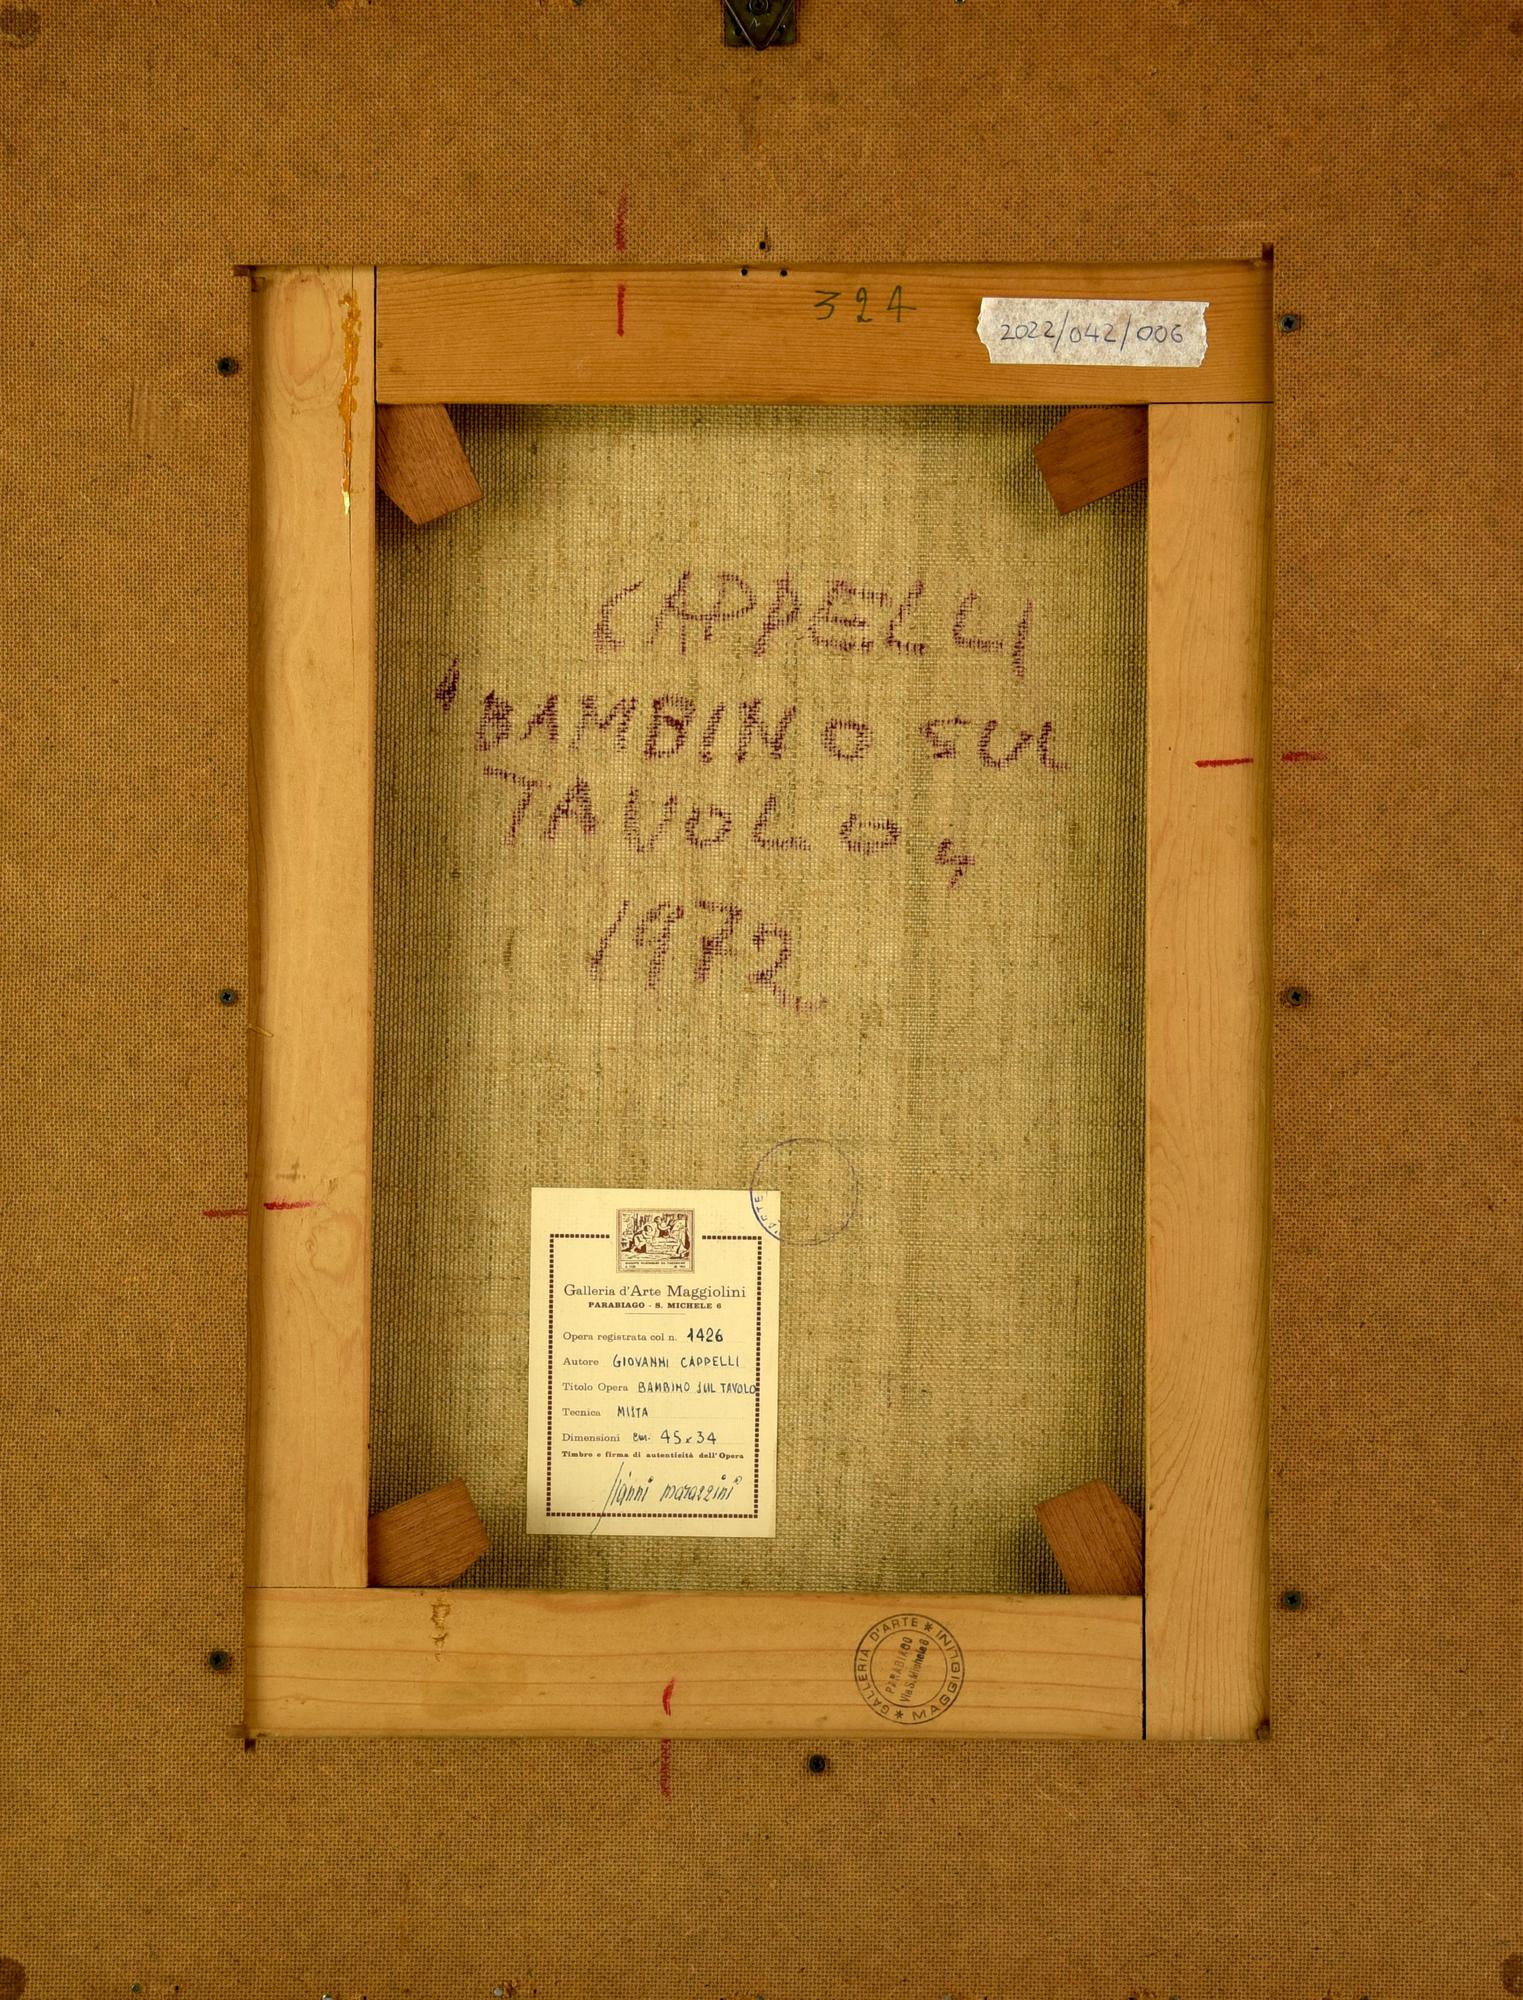 324
2022/042/006
CAPPELLI
"BAMBINO SUL
TAVOLO"
1972
D'ARTE
Galleria d'Arte Maggiolini
PARABIAGO - S. MICHELE 6
Opera registrata col n. 1426
Autore GIOVANNI CAPPELLI
Titolo Opera BAMBINO SUL TAVOLO
Tecnica MISTA
Dimensioni cm. 45x34
Timbro e firma di autenticità dell'Opera
Gianni Marazzini
* GALLERIA D'ARTE * MAGGIOLINI
PARABIAGO
Via S. Michele 6